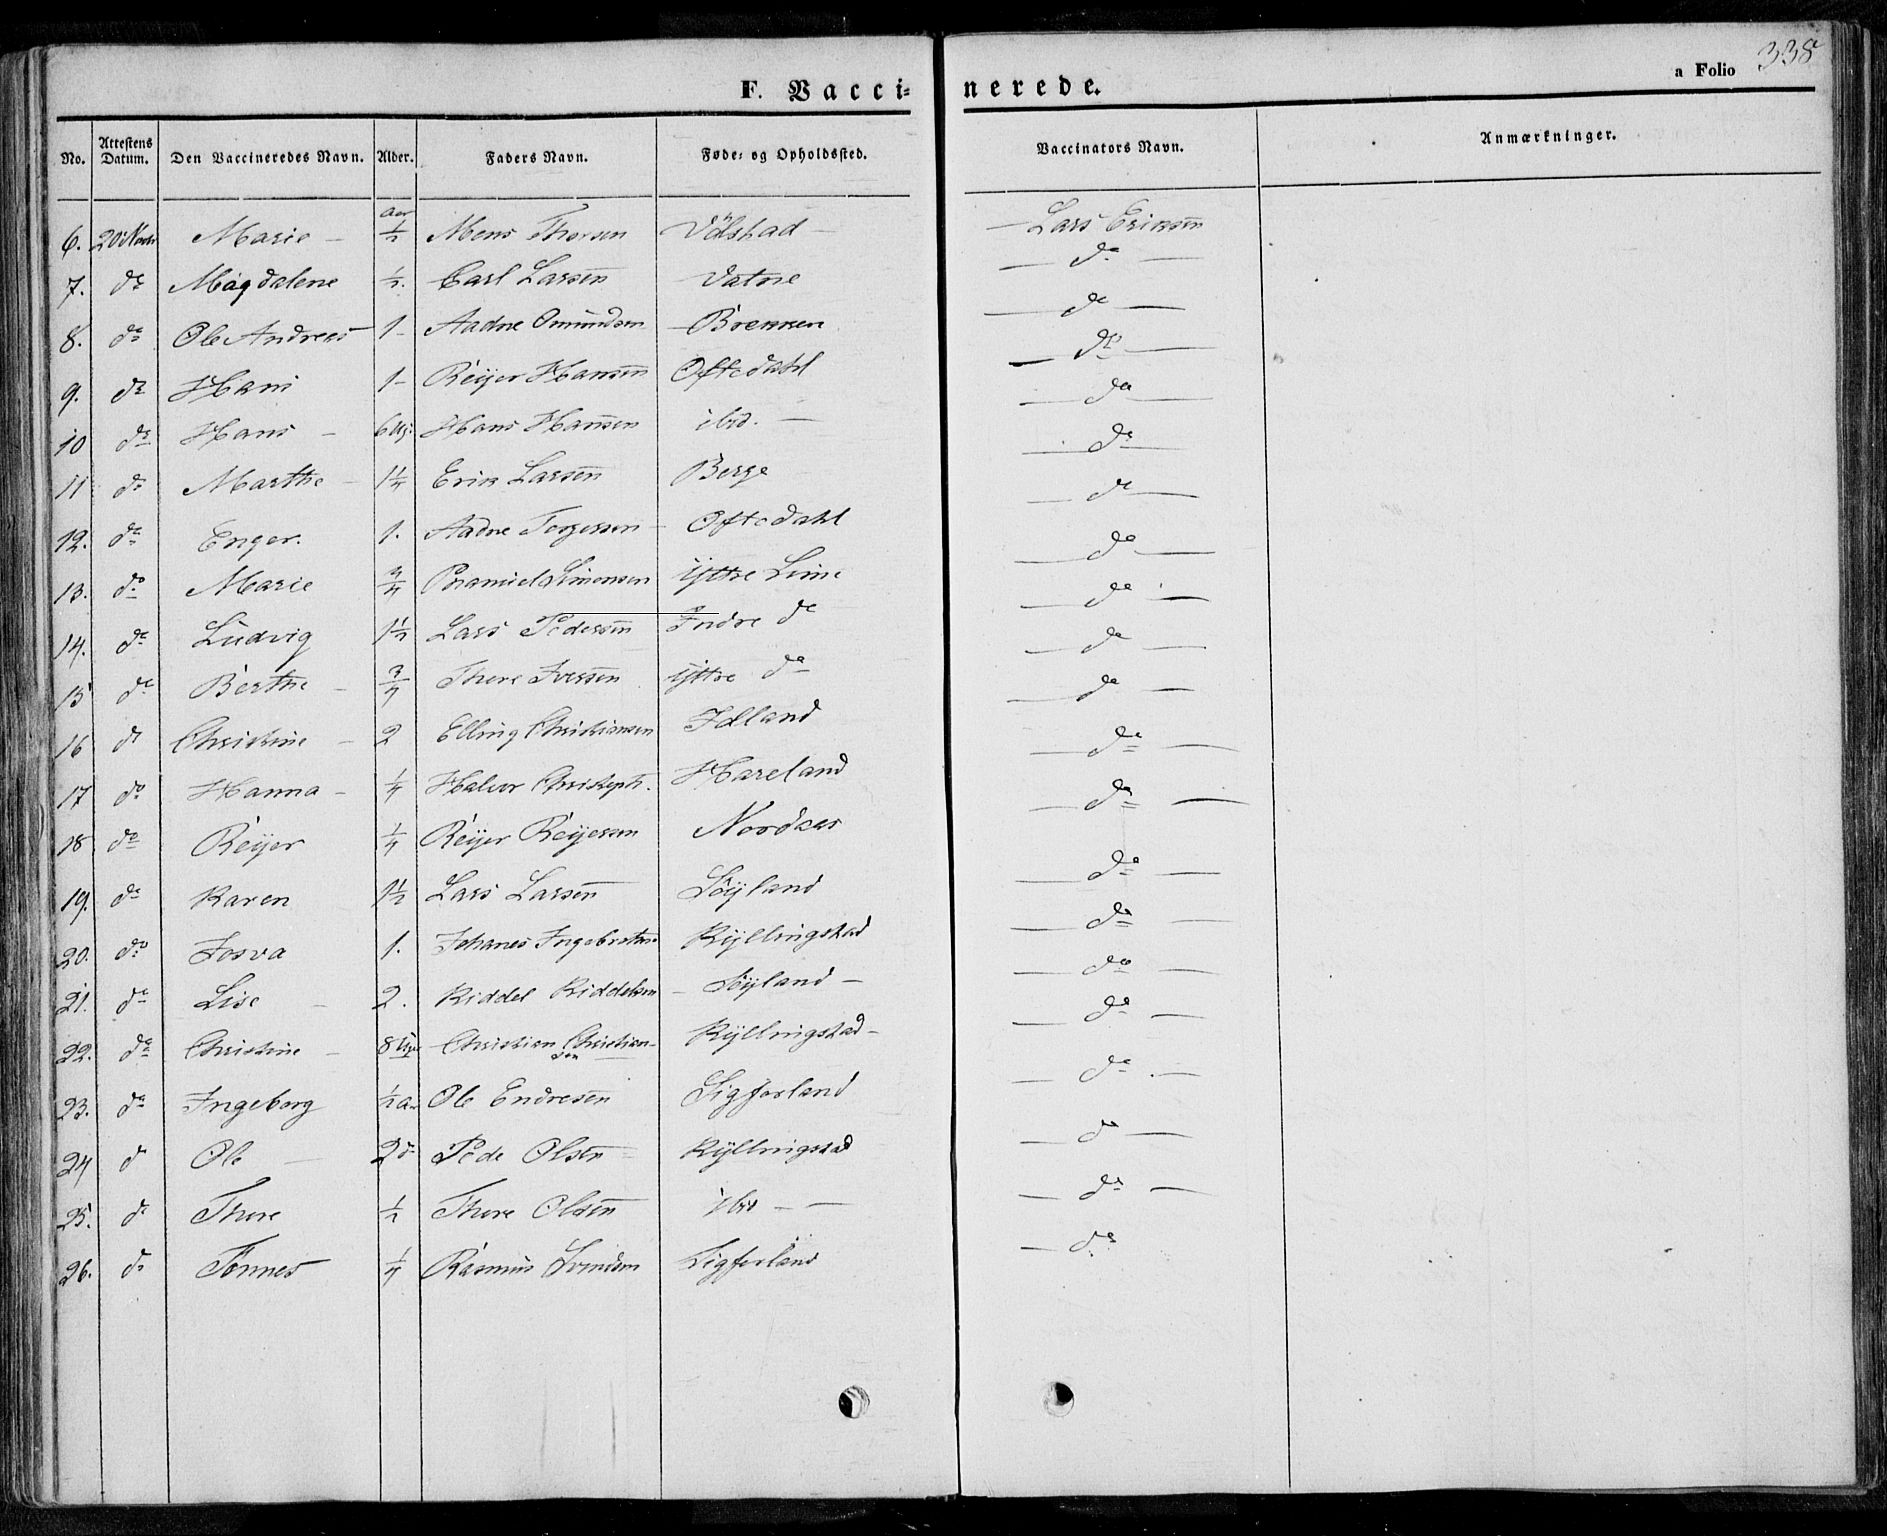 338
a Folio
F. Vacci= nerede.
No. Attestens Datum. Den Vaccineredes Navn. Alder. Faders Navn. Føde= og Opholdssted. Vaccinators Navn. Anmærkninger.
6. 20 Marie – aar ½ Mons Thorsen – Lars Eriksen
7. do Magdalene ½. Carl Larsen Vatne – do –
8. do Ole Andreas 1 – Aadne Omundsen – Brekken – do –
9. do Hans 1 – Reijer Hansen Oftedahl – do –
10 do Hans – 6 Ug. Hans Hansen ibid. – – do –
11 do Marthe – 1¼ Erik Larsen Berge – do –
12. do Enger. 1. Aadne Torgersen – Oftedahl – do –
13. do Marie ¾ Simonsen ÿttre Lime – do –
14. do Ludvig 1½ Lars Pedersen Indre do – do –
15 do Berthe – ¾ Thore Iversen ÿttre do – do –
16 do Christine – 2 Elling Christiansen – do –
17 do Hanna – ¼ Halvor Christoph. Hareland – do –
18 do Reijer ¼ Reijer Reijersen Nordaas – do –
19. do Karen 1½ Lars Larsen Søyland – do –
20. do Josva 1. Johanes Ingebretsen Kÿllingstad – do –
21. do Lise – 2. Riddel Riddelsen – Søyland – – do –
22. do Christine – 8 Uger Christian Christiansen Kÿllingstad – – do –
23. do Ingeborg ½ a. Ole Endresen Sigforland – do –
24 do Ole – 2 do Pede Olsen Kÿllingstad – do –
25. do Thore ½ Thore Olsen ibid – – – do –
26. do Tønnes ¼ Rasmus Svendsen Sigforland – do